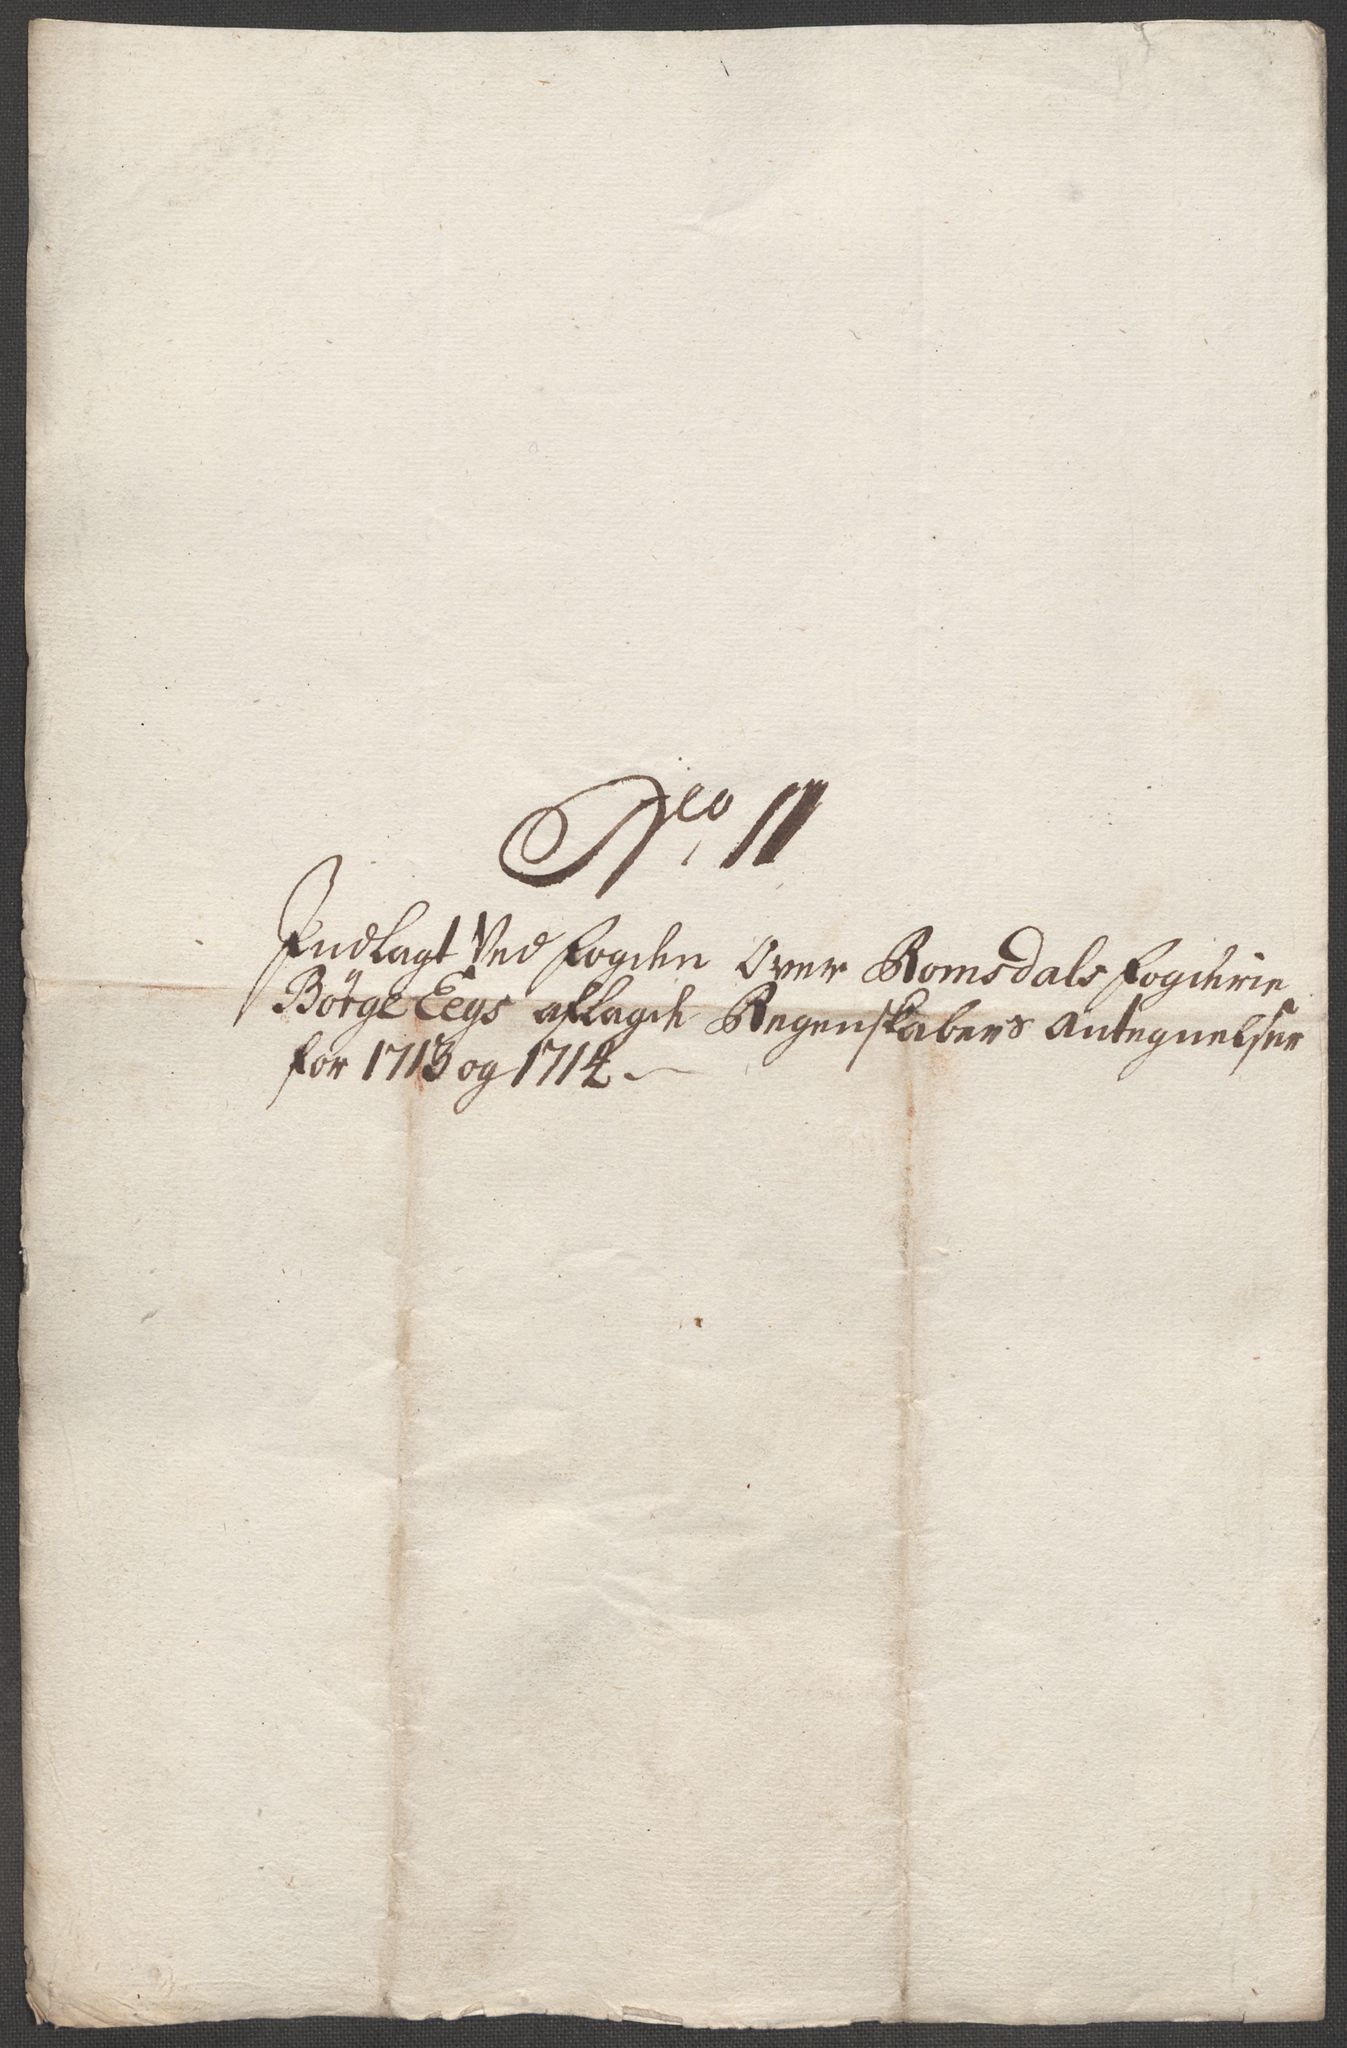 Nco 11
Indlagt Ved fogden Over Romsdals fogderie
Börge Eegs aflagde Regenskabers Antegnelser
for 1713 og 1714